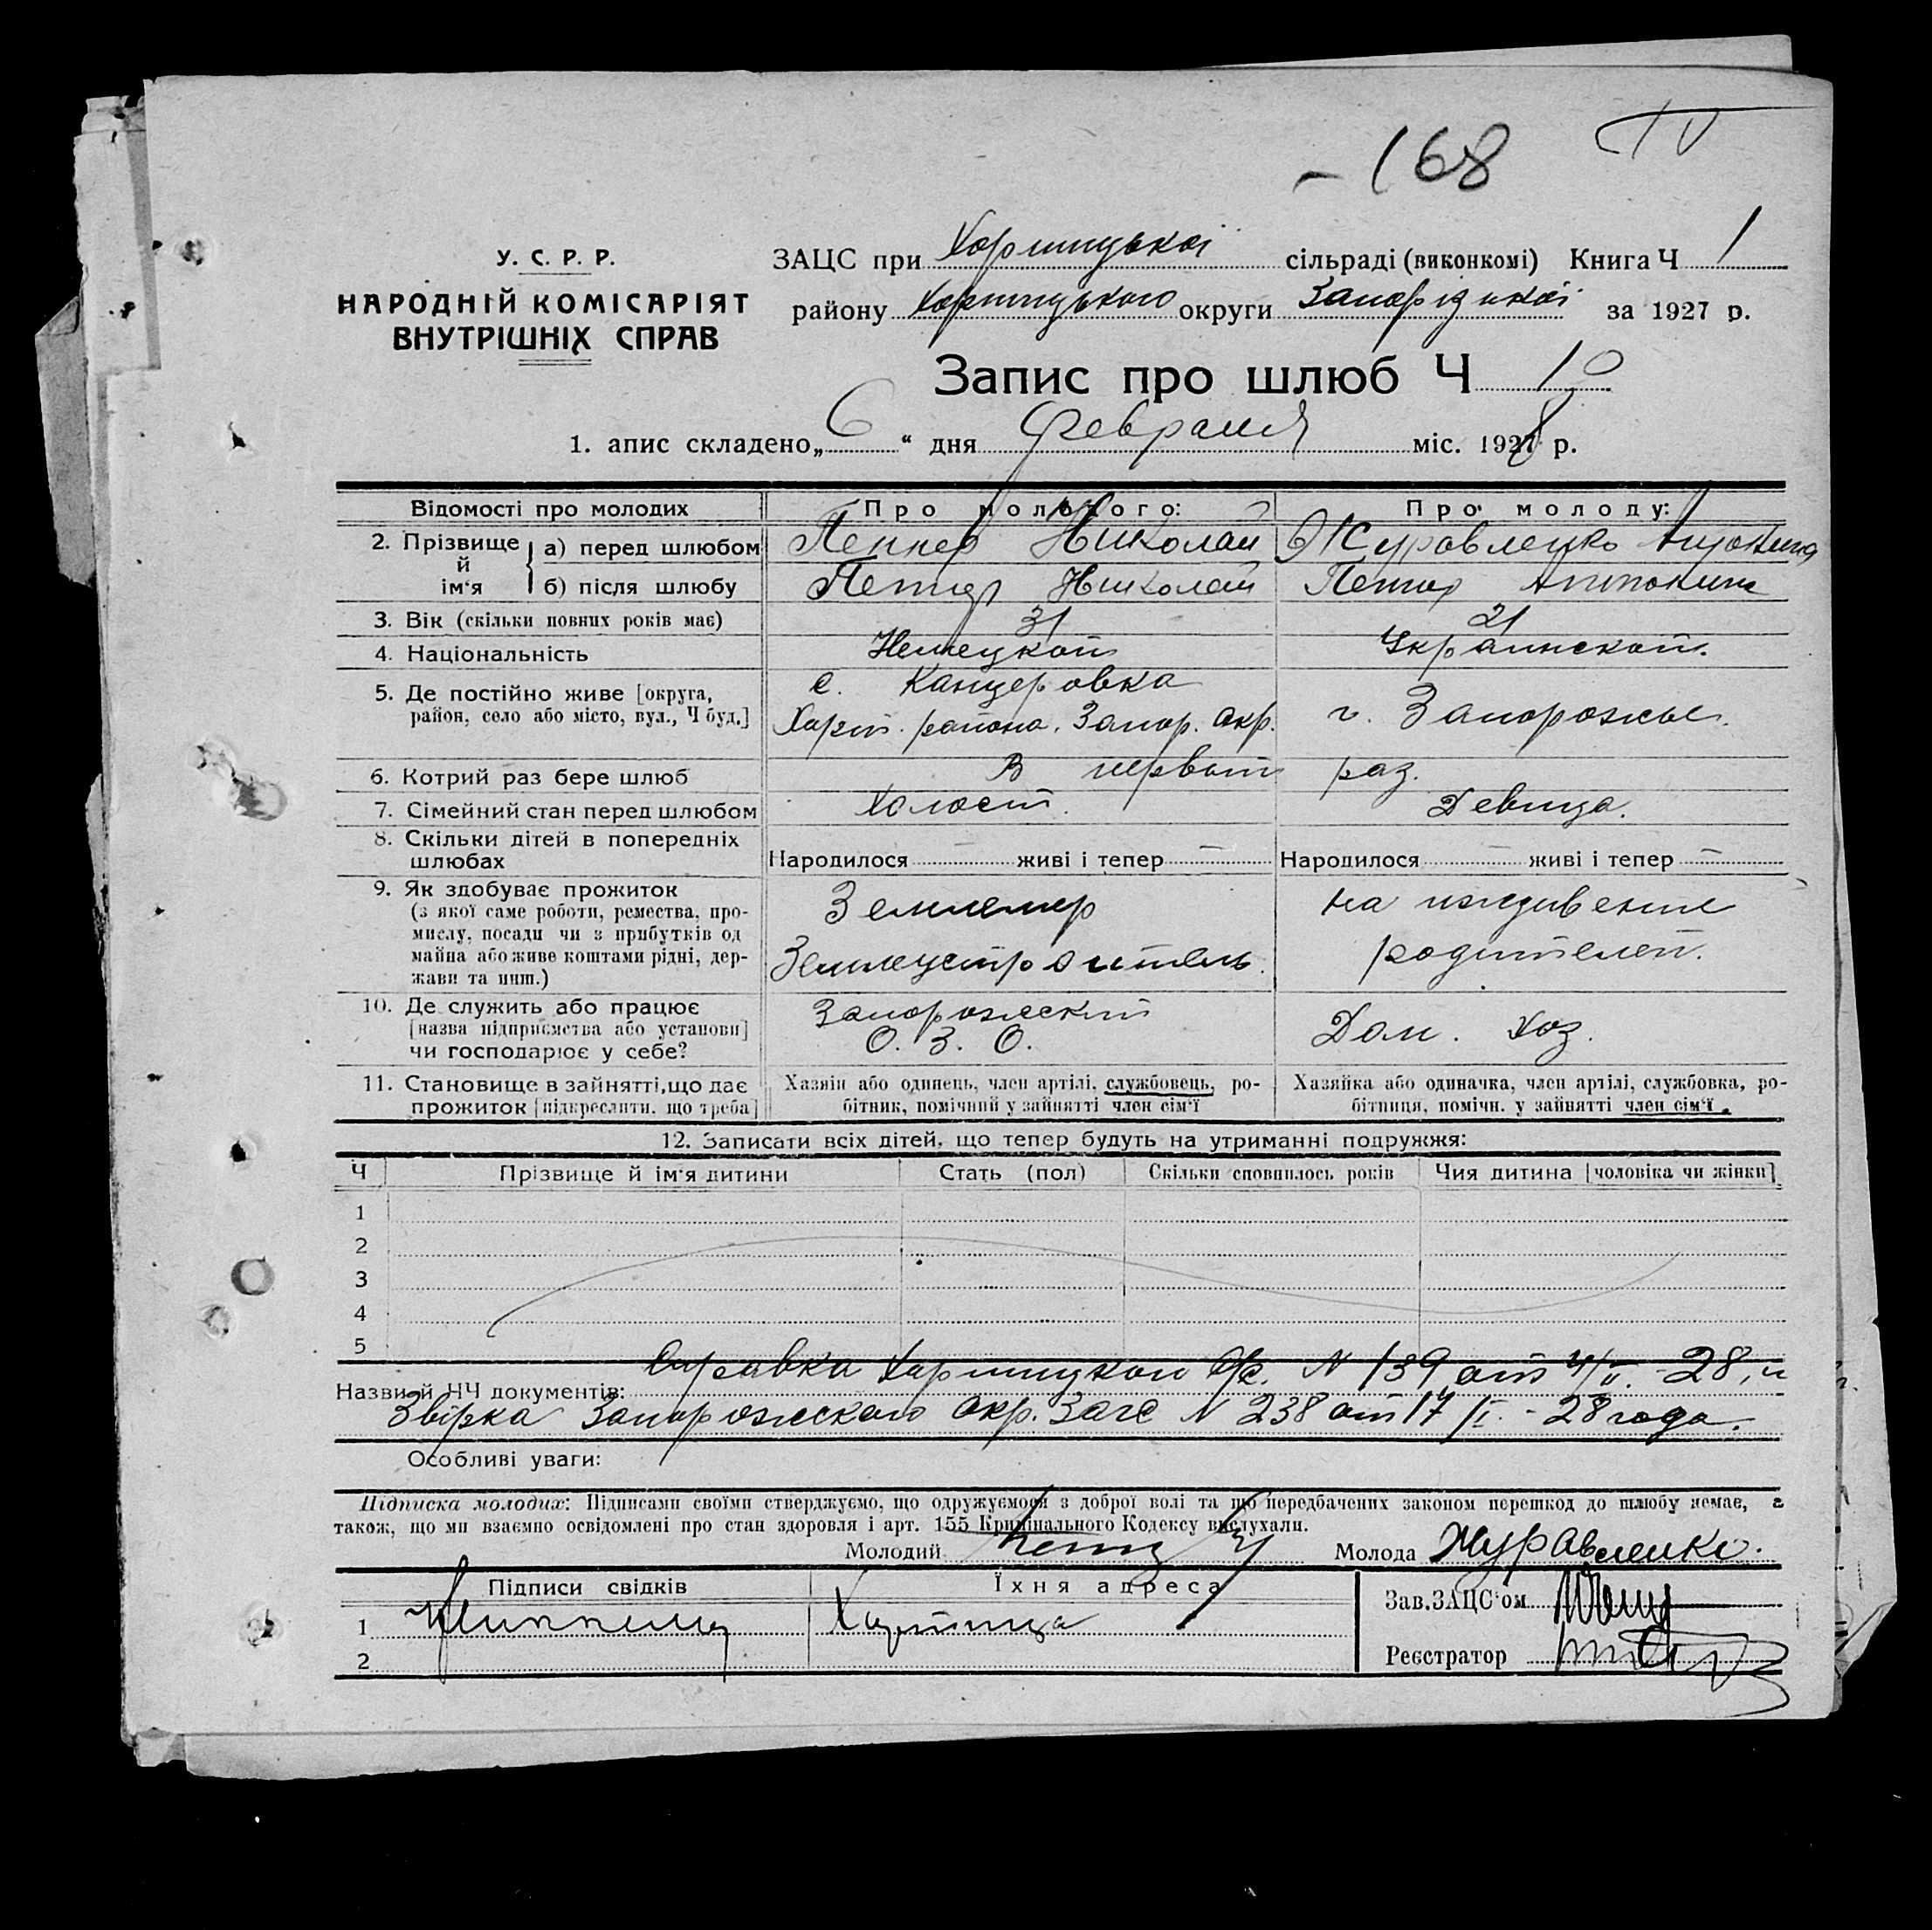 - 168 IV
У. С. Р. Р.
НАРОДНІЙ КОМІСАРІЯТ
ВНУТРІШНІХ СПРАВ
ЗАЦС при Хортицької сільраді (виконкомі) Книга Ч 1
району Хортицького округи Запорізької за 1927 р.
Запис про шлюб Ч 10
1. апис складено „6“ дня февраля міс. 1928 р.
Відомості про молодих Про молодого: Про молоду:
2. Прізвище й ім‘я
а) перед шлюбом Пеннер Николай Журавленко Антонина
б) після шлюбу Пеннер Николай Пеннер Антонина
3. Вік (скільки повних років має) 31 21
4. Національність Немецкой Украинской.
5. Де постійно живе [округа, район, село або місто, вул., Ч буд.]
с. Канцеровка
Хорт. района. Запор. Окр. г. Запорожье.
6. Котрий раз бере шлюб В первый раз.
7. Сімейний стан перед шлюбом Холост. Девица.
8. Скільки дітей в попередніх шлюбах Народилося — живі і тепер — Народилося — живі і тепер —
9. Як здобуває прожиток
(з якої саме роботи, ремества, про-
мислу, посади чи з прибутків од
майна або живе коштами рідні, дер-
жави та инш.)
Землемер
Землеустроитель.
на иждивении
родителей.
10. Де служить або працює
[назва підприємства або установи]
чи господарює у себе?
Запорожский
О. З. О.
Дом. Хоз.
11. Становище в зайнятті, що дає
прожиток [підкреслити. що треба]
Хазяїн або одинець, член артілі, службовець, ро-
бітник, помічний у зайнятті член сім‘ї
Хазяйка або одиначка, член артілі, службовка, ро-
бітниця, помічн. у зайнятті член сім‘ї.
12. Записати всіх дітей, що тепер будуть на утриманні подружжя:
Ч Прізвище й ім‘я дитини Стать (пол) Скільки сповнилось років Чия дитина [чоловіка чи жінки]
1
2
3
4
5
Назви й ЧЧ документів: Справка Хортицкой N 139 от 4/II. - 28, и
Звірка Запорожского Окр. Загс N 238 от 17/I. - 28 года.
Особливі уваги:
Підписка молодих: Підписами своїми стверджуємо, що одружуємося з доброї волі та що передбачених законом перешкод до шлюбу немає, а
також, що ми взаємно освідомлені про стан здоровля і арт. 155 Кримінального Кодексу вислухали.
Молодий Молода Журавленко.
Підписи свідків Їхня адреса Зав. ЗАЦС‘ом
1 Хортица
2 Реєстратор